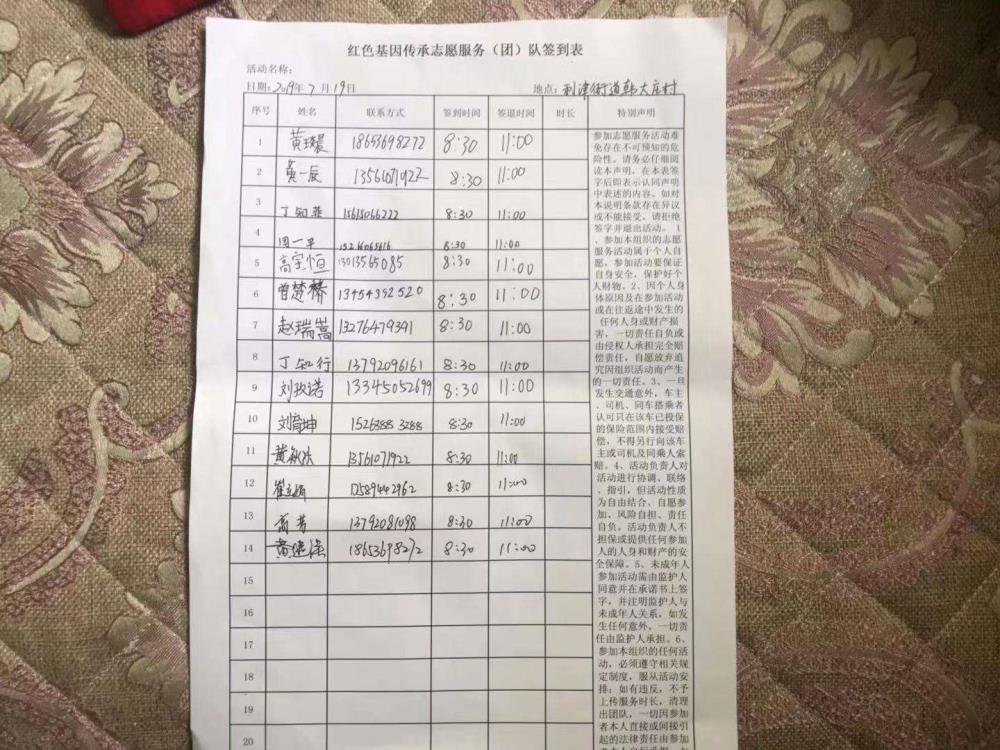 红色基因传承志愿服务（团）队签到表
活动名称：
日期：2019年7月19日 地点：利津街道韩大庄村
序号 姓名 联系方式 签到时间 签退时间 时长 特别声明
1 黄瑞晨 18653698272 8:30 11:00
2 黄一辰 13561071922 8:30 11:00
3 丁知菲 15615066222 8:30 11:00
4 周一平 8:30 11:00
5 高宇恒 13013565085 8:30 11:00
6 曾楚 13454392520 8:30 11:00
7 赵瑞嵩 13276479391 8:30 11:00
8 丁知行 13792096161 8:30 11:00
9 刘玫诺 13345052699 8:30 11:00
10 刘育坤 15263883288 8:30 11:00
11 黄 13561071922 8:30 11:00
12 崔 13589442962 8:30 11:00
13 高芳 13792081098 8:30 11:00
14 黄 18653698272 8:30 11:00
15
16
17
18
19
20
参加志愿服务活动难
免存在不可预知的危
险性。请务必仔细阅
读本声明，在本表签
字后即表示认同声明
中表述的内容。如对
本说明条款存在异议
或不能接受，请拒绝
签字并退出活动。 1
、参加本组织的志愿
服务活动属于个人自
愿。参加活动要保证
自身安全，保护好个
人财物。2、因个人身
体原因及在参加活动
或在往返途中发生的
任何人身或财产损
害，一切责任自负或
由侵权人承担完全赔
偿责任，自愿放弃追
究因组织活动而产生
的一切责任。3、一旦
发生交通意外，车主
、司机、同车搭乘者
认可只在该车已投保
的保险范围内接受赔
偿，不得另行向该车
主或司机及同乘人索
赔。4、活动负责人对
活动进行协调、联络
、指引，但活动性质
为自由结合、自愿参
加、风险自担、责任
自负。活动负责人不
担保或提供任何参加
人的人身和财产的安
全保障。5、未成年人
参加活动需由监护人
同意并在承诺书上签
字，并注明监护人与
未成年人关系，如发
生任何意外，一切责
任由监护人承担。6、
参加本组织的任何活
动，必须遵守相关规
定制度，服从活动安
排；如有违反，不予
上传服务时长，清理
出团队，一切因参加
者本人直接或间接引
起的法律责任由参加